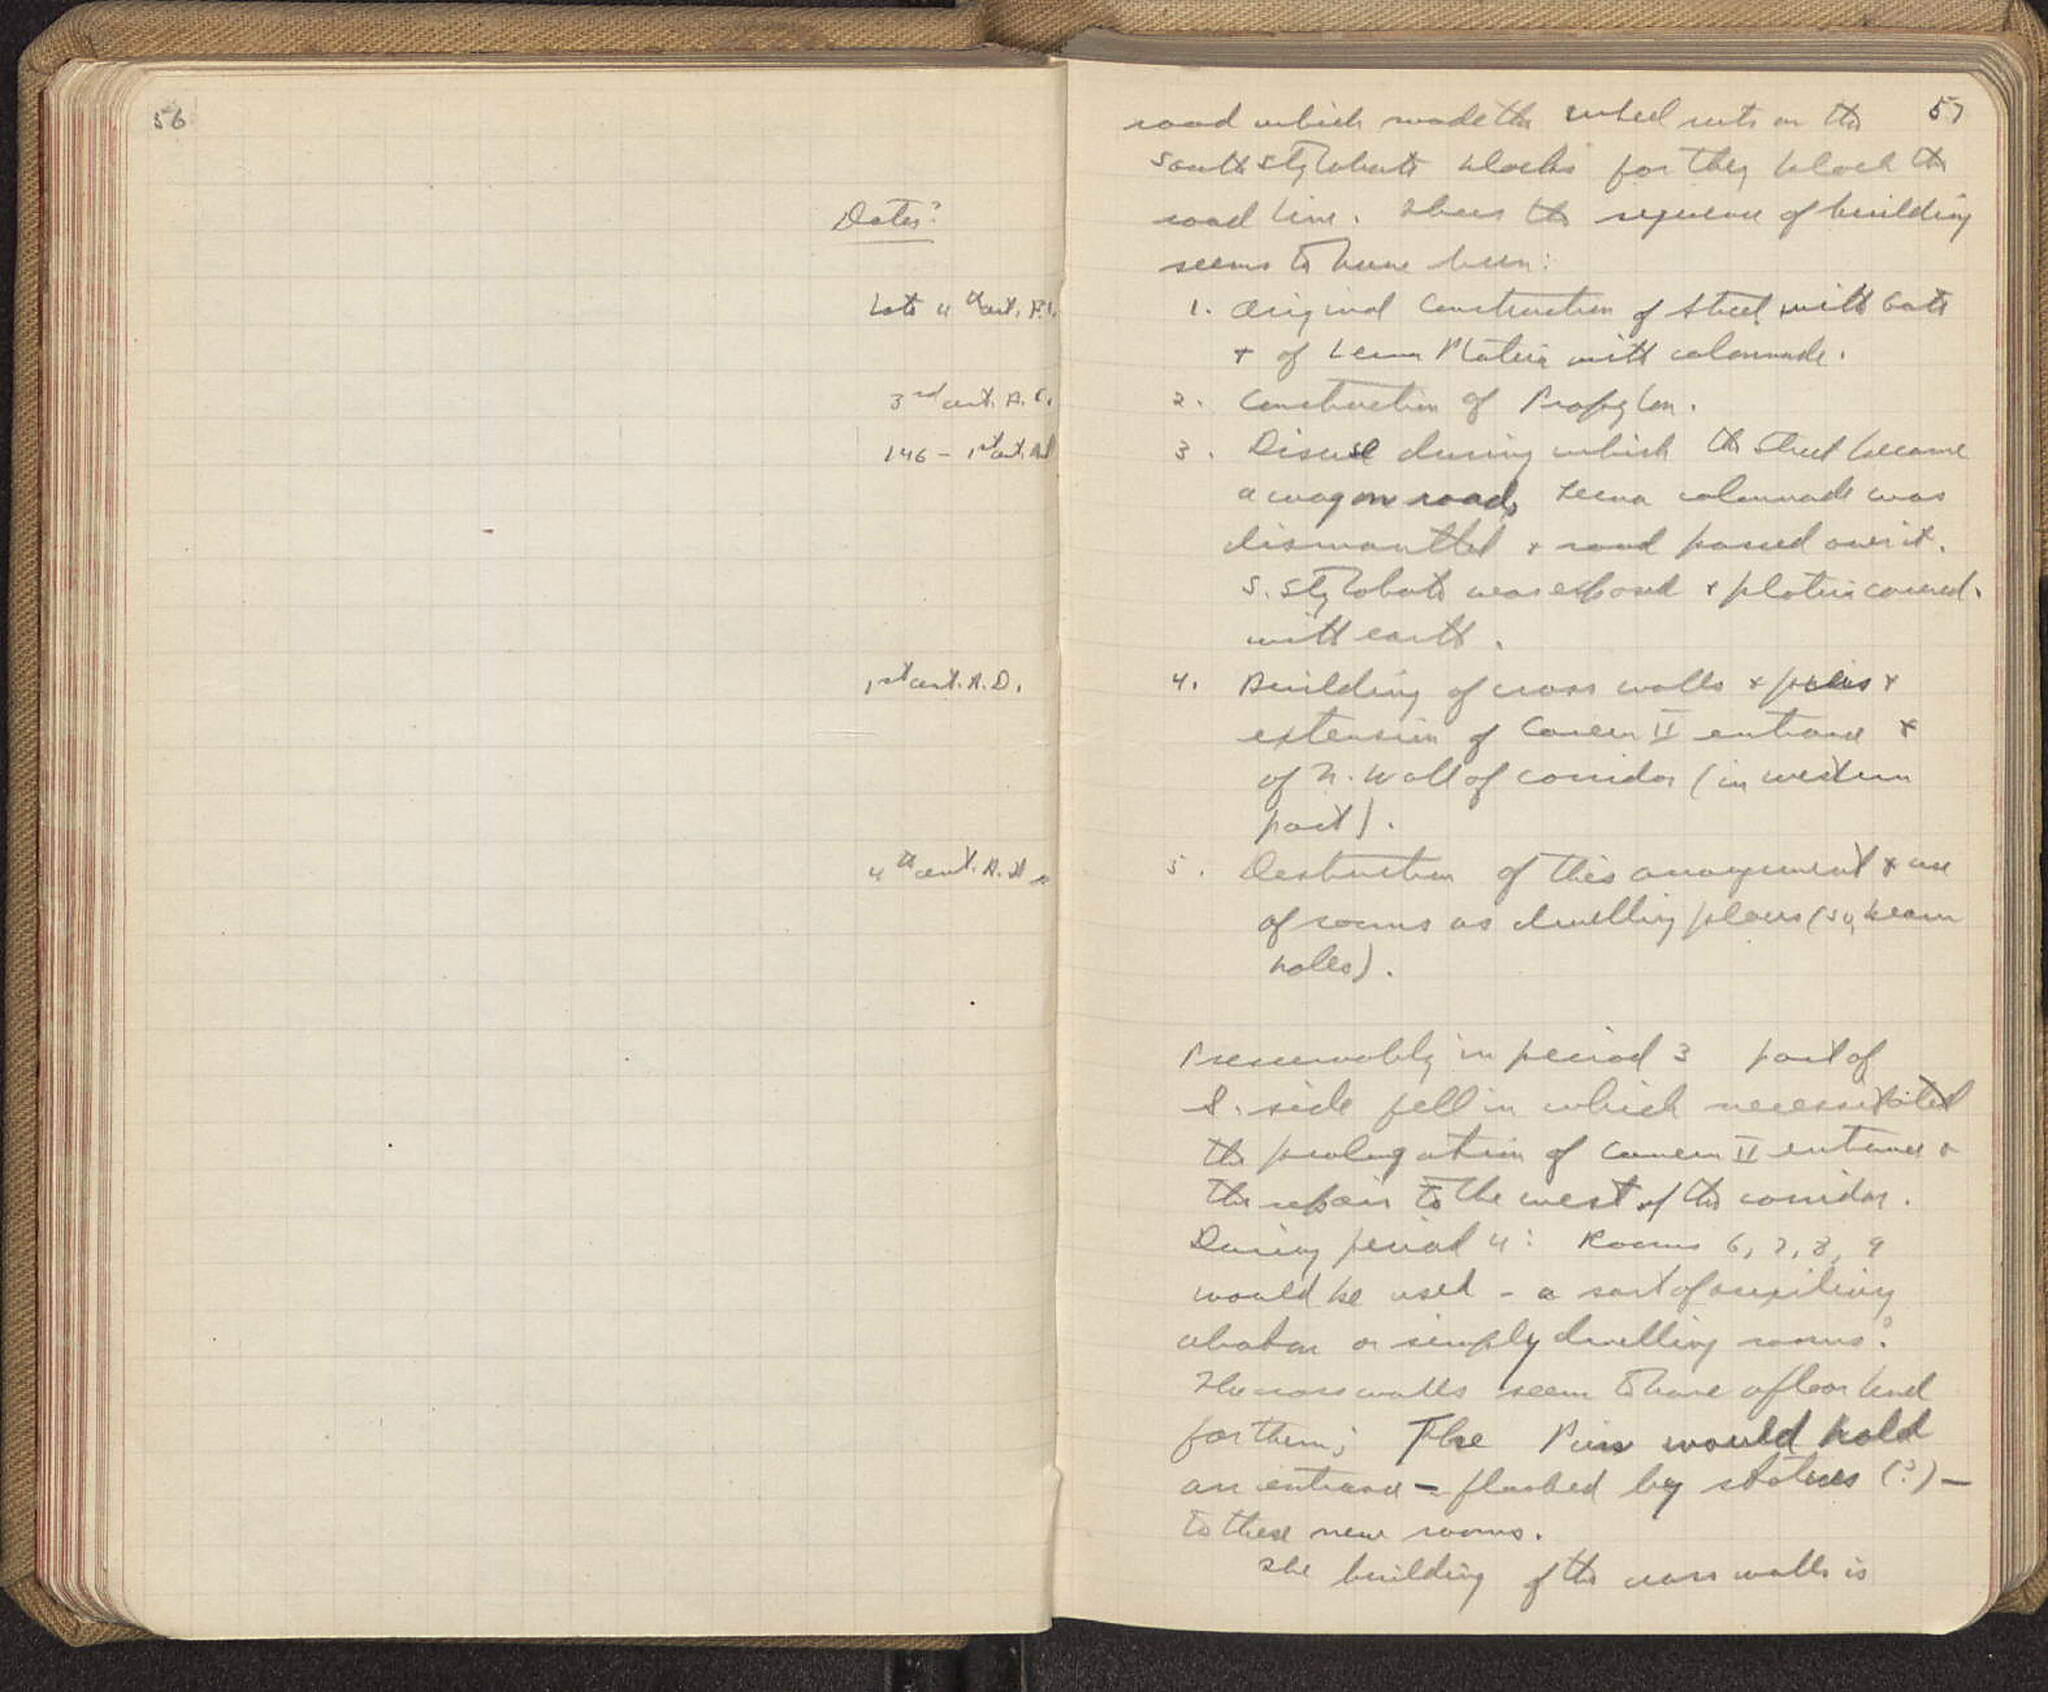 56
Dates?
Late 4th cent. B.C.
3rd cent. B.C.
146 - 1st cent. A.D.
1st cent. A.D.
4th cent. A.D.
57
road which made the wheel ruts on the
south stylobate blocks for they block the
road line. Thus the sequence of building
seems to have been:
1. Original construction of street with Gate
+ of Lerna Plateia with colonnade.
2. Construction of Propylon.
3. Disuse during which the street became
a wagon road, Lerna colonnade was
dismantled + road passed over it.
S. Stylobate was exposed + plateia covered
with earth.
4. Building of cross walls + piers +
extension of Cavern II entrance +
of N. Wall of corridor (in western
part).
5. Destruction of this arrangement + use
of rooms as dwelling places (so, beam
holes).
Presumably in period 3 part of
S. side fell in which necessitated
the prolongation of Cavern II entrance +
the repair to the west of the corridor.
During period 4: Rooms 6, 7, 8, 9
would be used - a sort of auxiliary
abaton or simply dwelling rooms?
The cross walls seem to have a floor level
for them; The Piers would hold
an entrance - flanked by statues (?) -
to these new rooms.
The building of the cross walls is